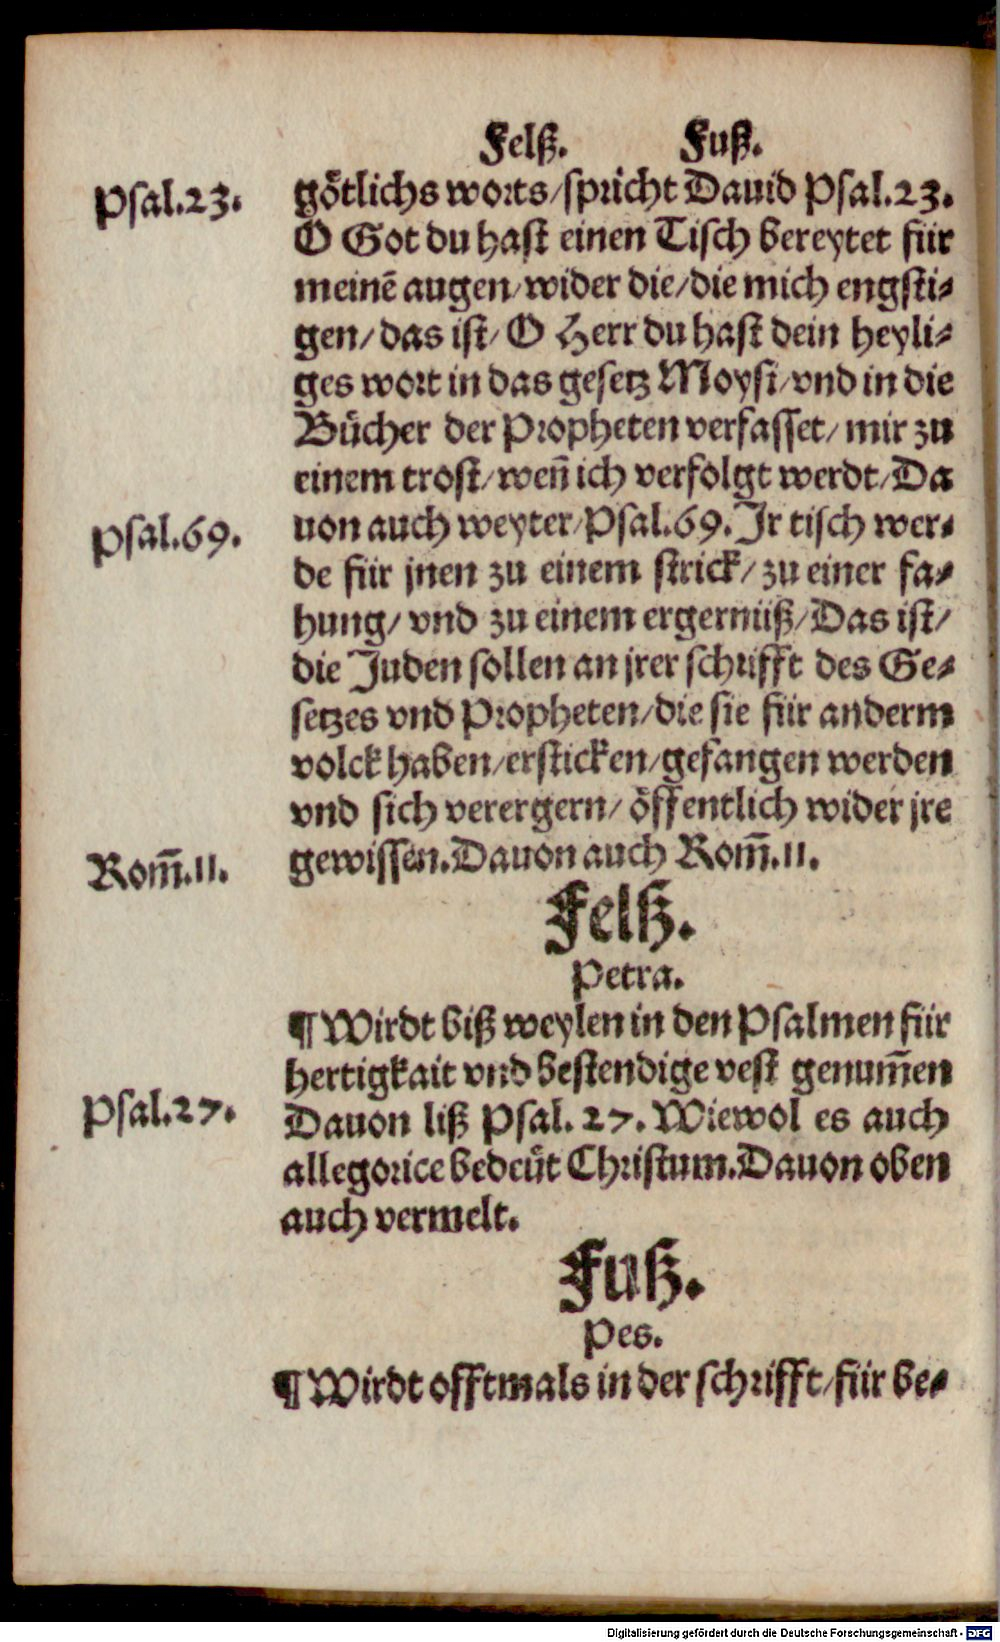 Felß. Fuß.
Psal.23. götlichs worts/spricht Dauid Psal.23.
O Got du hast einen Tisch bereytet für
meinē augen/wider die/die mich engsti-
gen/das ist/O Herr du hast dein heyli-
ges wort in das gesetz Moysi/vnd in die
Bücher der Propheten verfasset/mir zu
einem trost/weñ ich verfolgt werdt/Da
Psal.69. uon auch weyter/Psal.69.Jr tisch wer-
de für jnen zu einem strick/zu einer fa-
hung/vnd zu einem ergernüß/Das ist/
die Juden sollen an jrer schrifft des Ge-
setzes vnd Propheten/die sie für anderm
volck haben/ersticken/gefangen werden
vnd sich verergern/öffentlich wider jre
Rom̄.11. gewissen.Dauon auch Rom̄.11.
Felß.
Petra.
¶ Wirdt biß weylen in den Psalmen für
hertigkait vnd bestendige vest genum̄en
Psal.27. Dauon liß Psal.27.Wiewol es auch
allegorice bedeüt Christum.Dauon oben
auch vermelt.
Fuß.
Pes.
¶ Wirdt offtmals in der schrifft/für be-
Digitalisierung gefördert durch die Deutsche Forschungsgemeinschaft - DFG